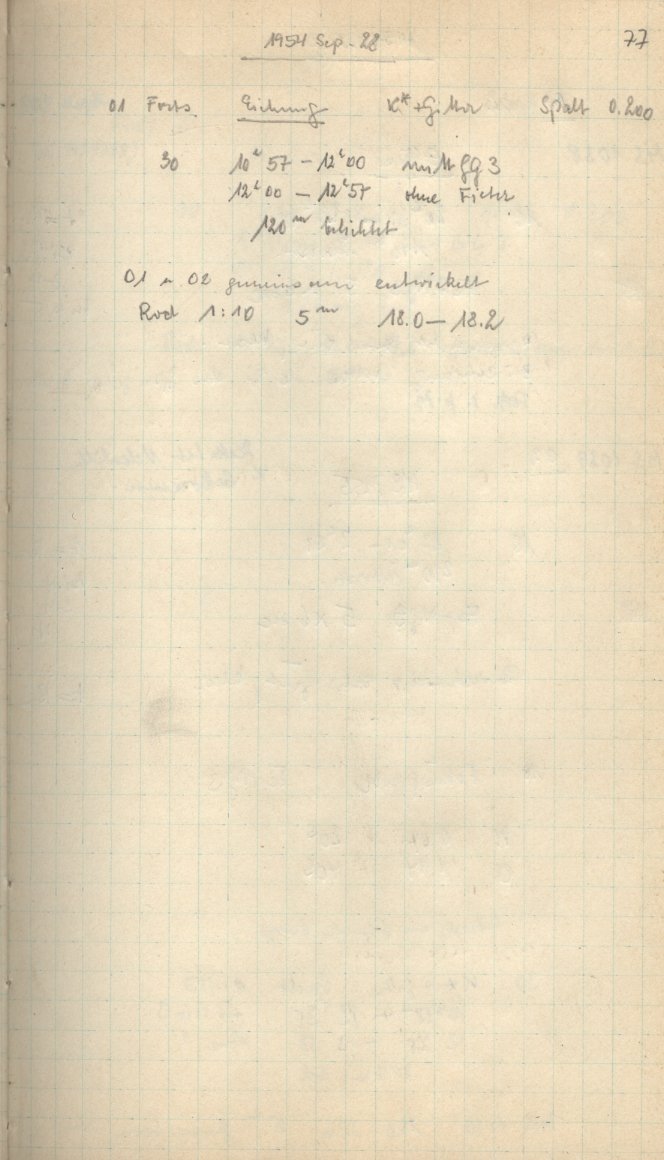 1954 Sep. 28 77
01 Forts. Eichung K*+Gitter Spalt 0.200
30 10ʰ57 – 12ʰ00 mit GG3
12ʰ00 – 12ʰ57 ohne Filter
120ᵐ belichtet
01 u 02 gemeinsam entwickelt
Rod 1:10 5ᵐ 18.0 – 18.2